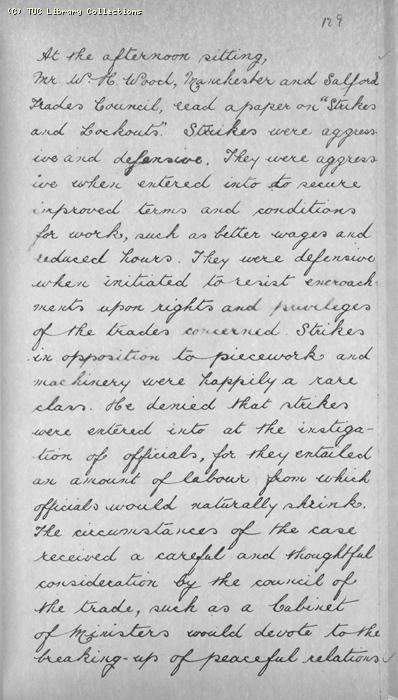 (C) TUC Library Collections
129
At the afternoon sitting,
Mr W. H. Wood, Manchester and Salford
Trades Council, read a paper on "Strikes
and Lockouts". Strikes were aggress
ive and defensive. They were aggress
ive when entered into to secure
improved terms and conditions
for work, such as better wages and
reduced hours. They were defensive
when initiated to resist encroach-
ments upon rights and privileges
of the trades concerned. Strikes
in opposition to piecework and
machinery were happily a rare
class. He denied that strikes
were entered into at the instiga-
tion of officials, for they entailed
an amount of labour from which
officials would naturally shrink.
The circumstances of the case
received a careful and thoughtful
consideration by the council of
the trade, such as a Cabinet
of Ministers would devote to the
breaking-up of peaceful relations